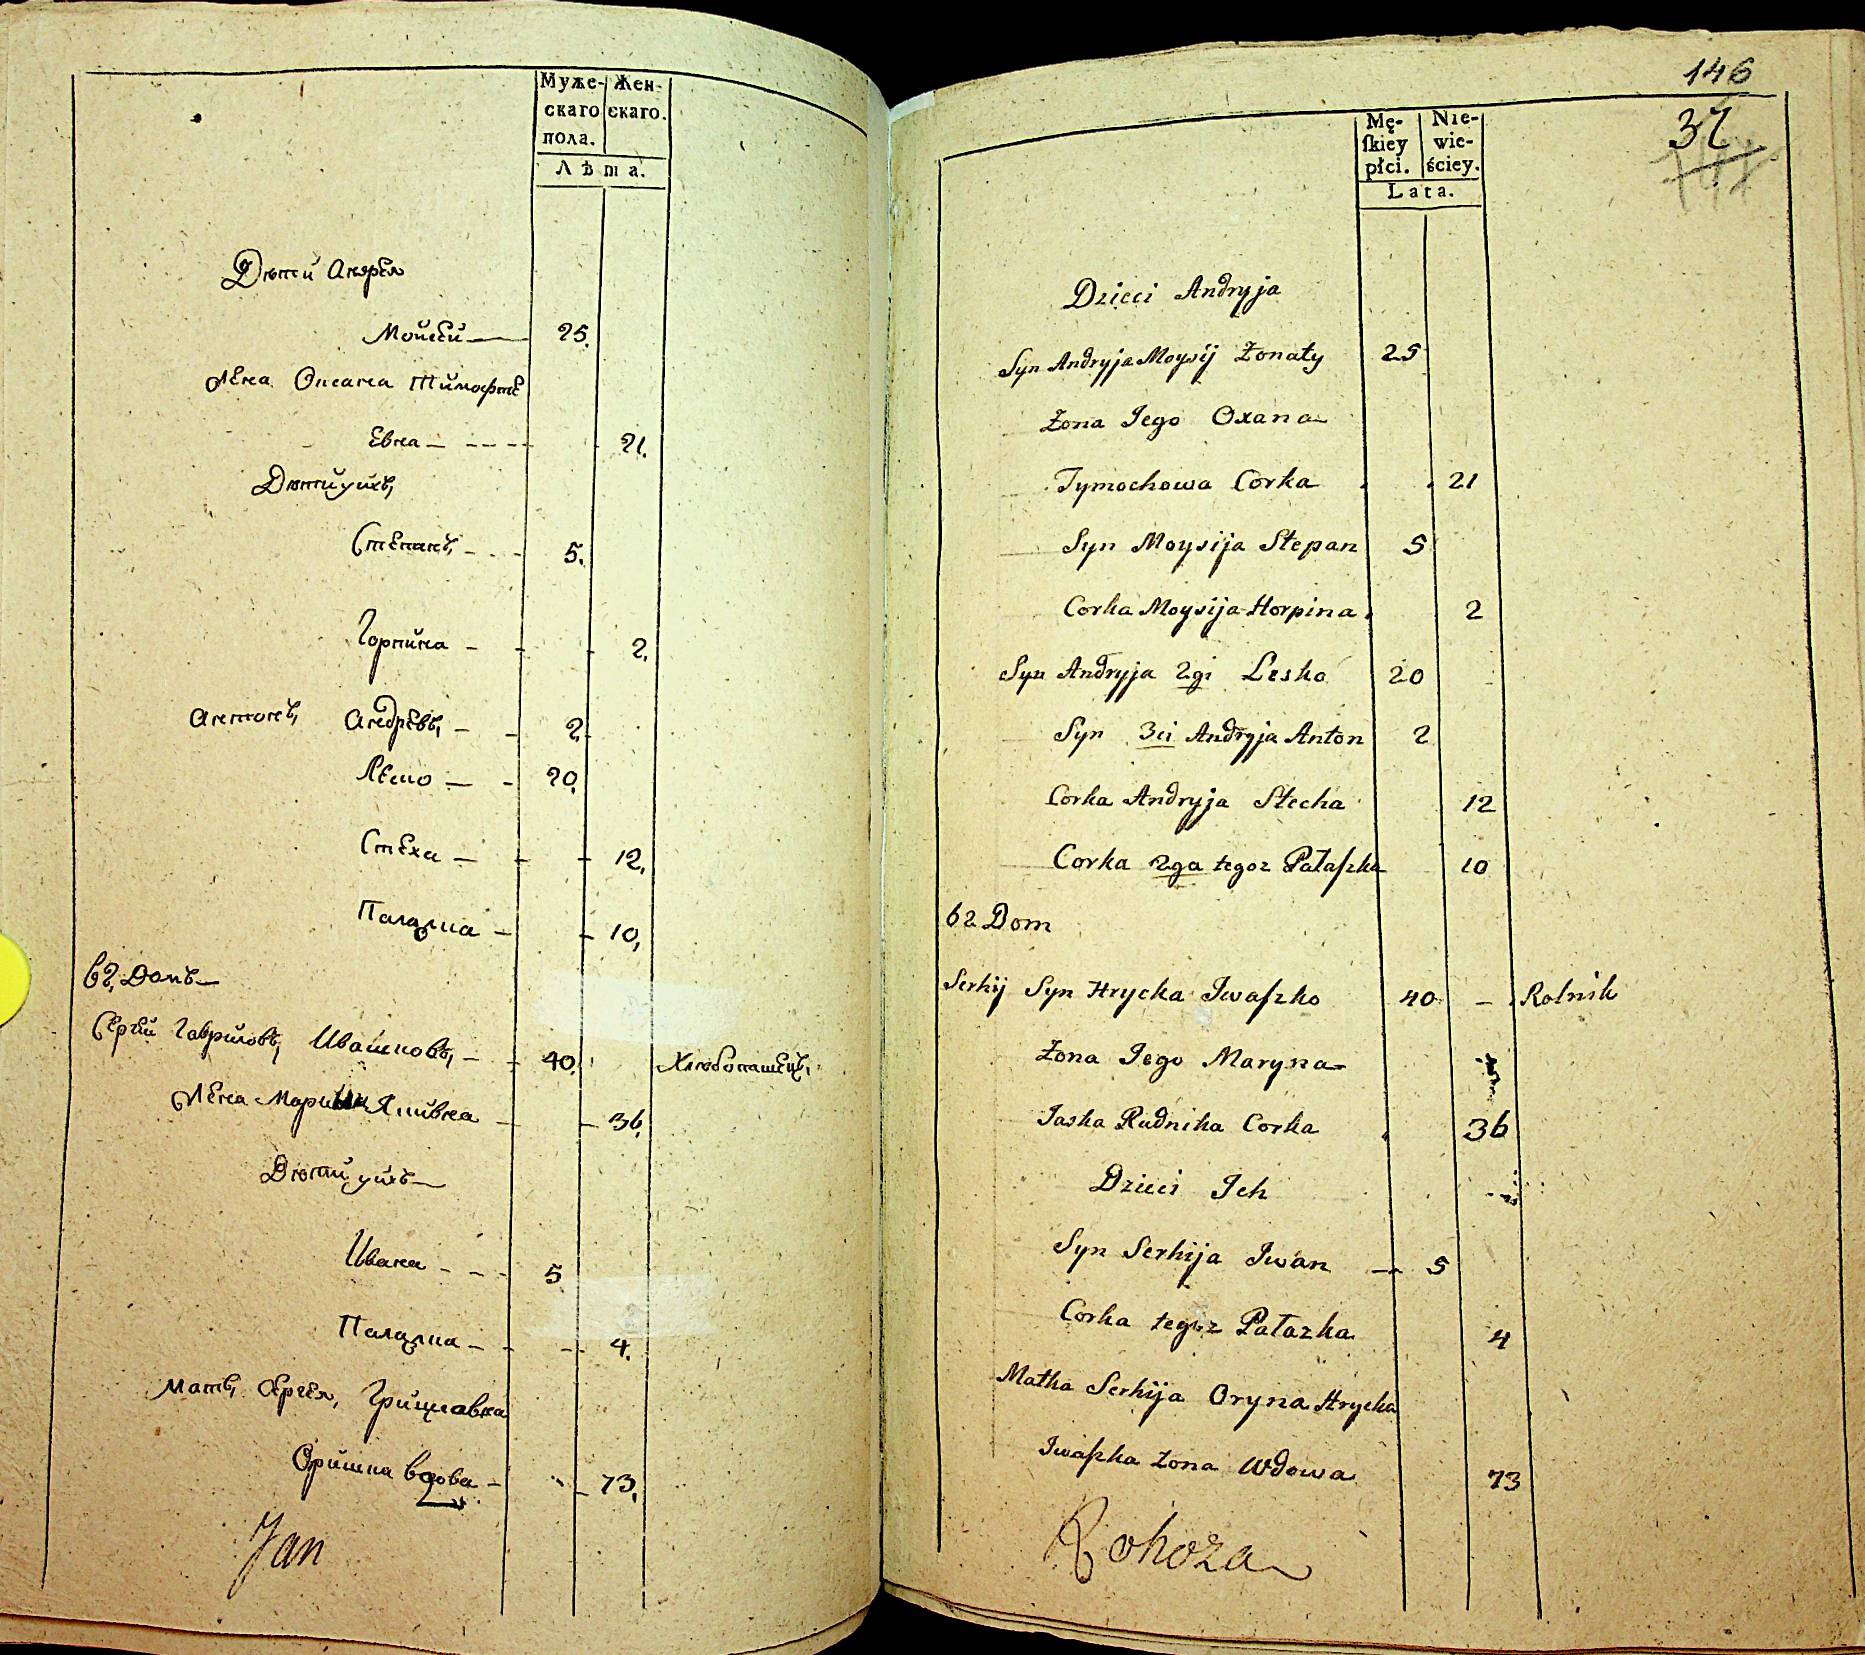 Муже-
скаго
пола.
Жен-
скаго.
Лѣта.
Дѣти Андрея
Мойсей 25.
Жена Оксана Тимофѣе
Евна 21.
Дѣти ихъ,
Степанъ, 5.
Горпина 2.
Антонъ, Андрѣевъ, 2
Леско 20,
Стеха 12,
Палажка 10,
62, Домъ
Сергий Гавриловъ, Ивашковъ, 40, Хлѣбопашецъ,
Жена Марина Яшивна 36,
Дѣти ихъ
Ивана 5
Палажка 4.
Мать, Сергея, Грицковна
Оришка вдова 73,
Jan
146
37
Mę-
ſkiey
płci.
Nie-
wie-
ściey.
Lata.
Dzieci Andryja
Syn Andryja Moysij Żonaty 25
Żona Jego Oxana
Tymochowa Corka 21
Syn Moysija Stepan 5
Corka Moysija Horpina 2
Syn Andryja 2gi Lesko 20
Syn 3ci Andryja Anton 2
Corka Andryja Stecha 12
Corka 2ga tegoz Pałaſzka 10
62 Dom
Serhij Syn Hrycka Iwaſzko 40 – Rolnik
Żona Jego Maryna
Jaska Rudnika Corka 36
Dzieci Jch
Syn Serhija Jwan 5
Corka tegoz Pałazka 4
Matka Serhija Oryna Hrycka
Jwaſzka Żona Wdowa 73
Rohoza